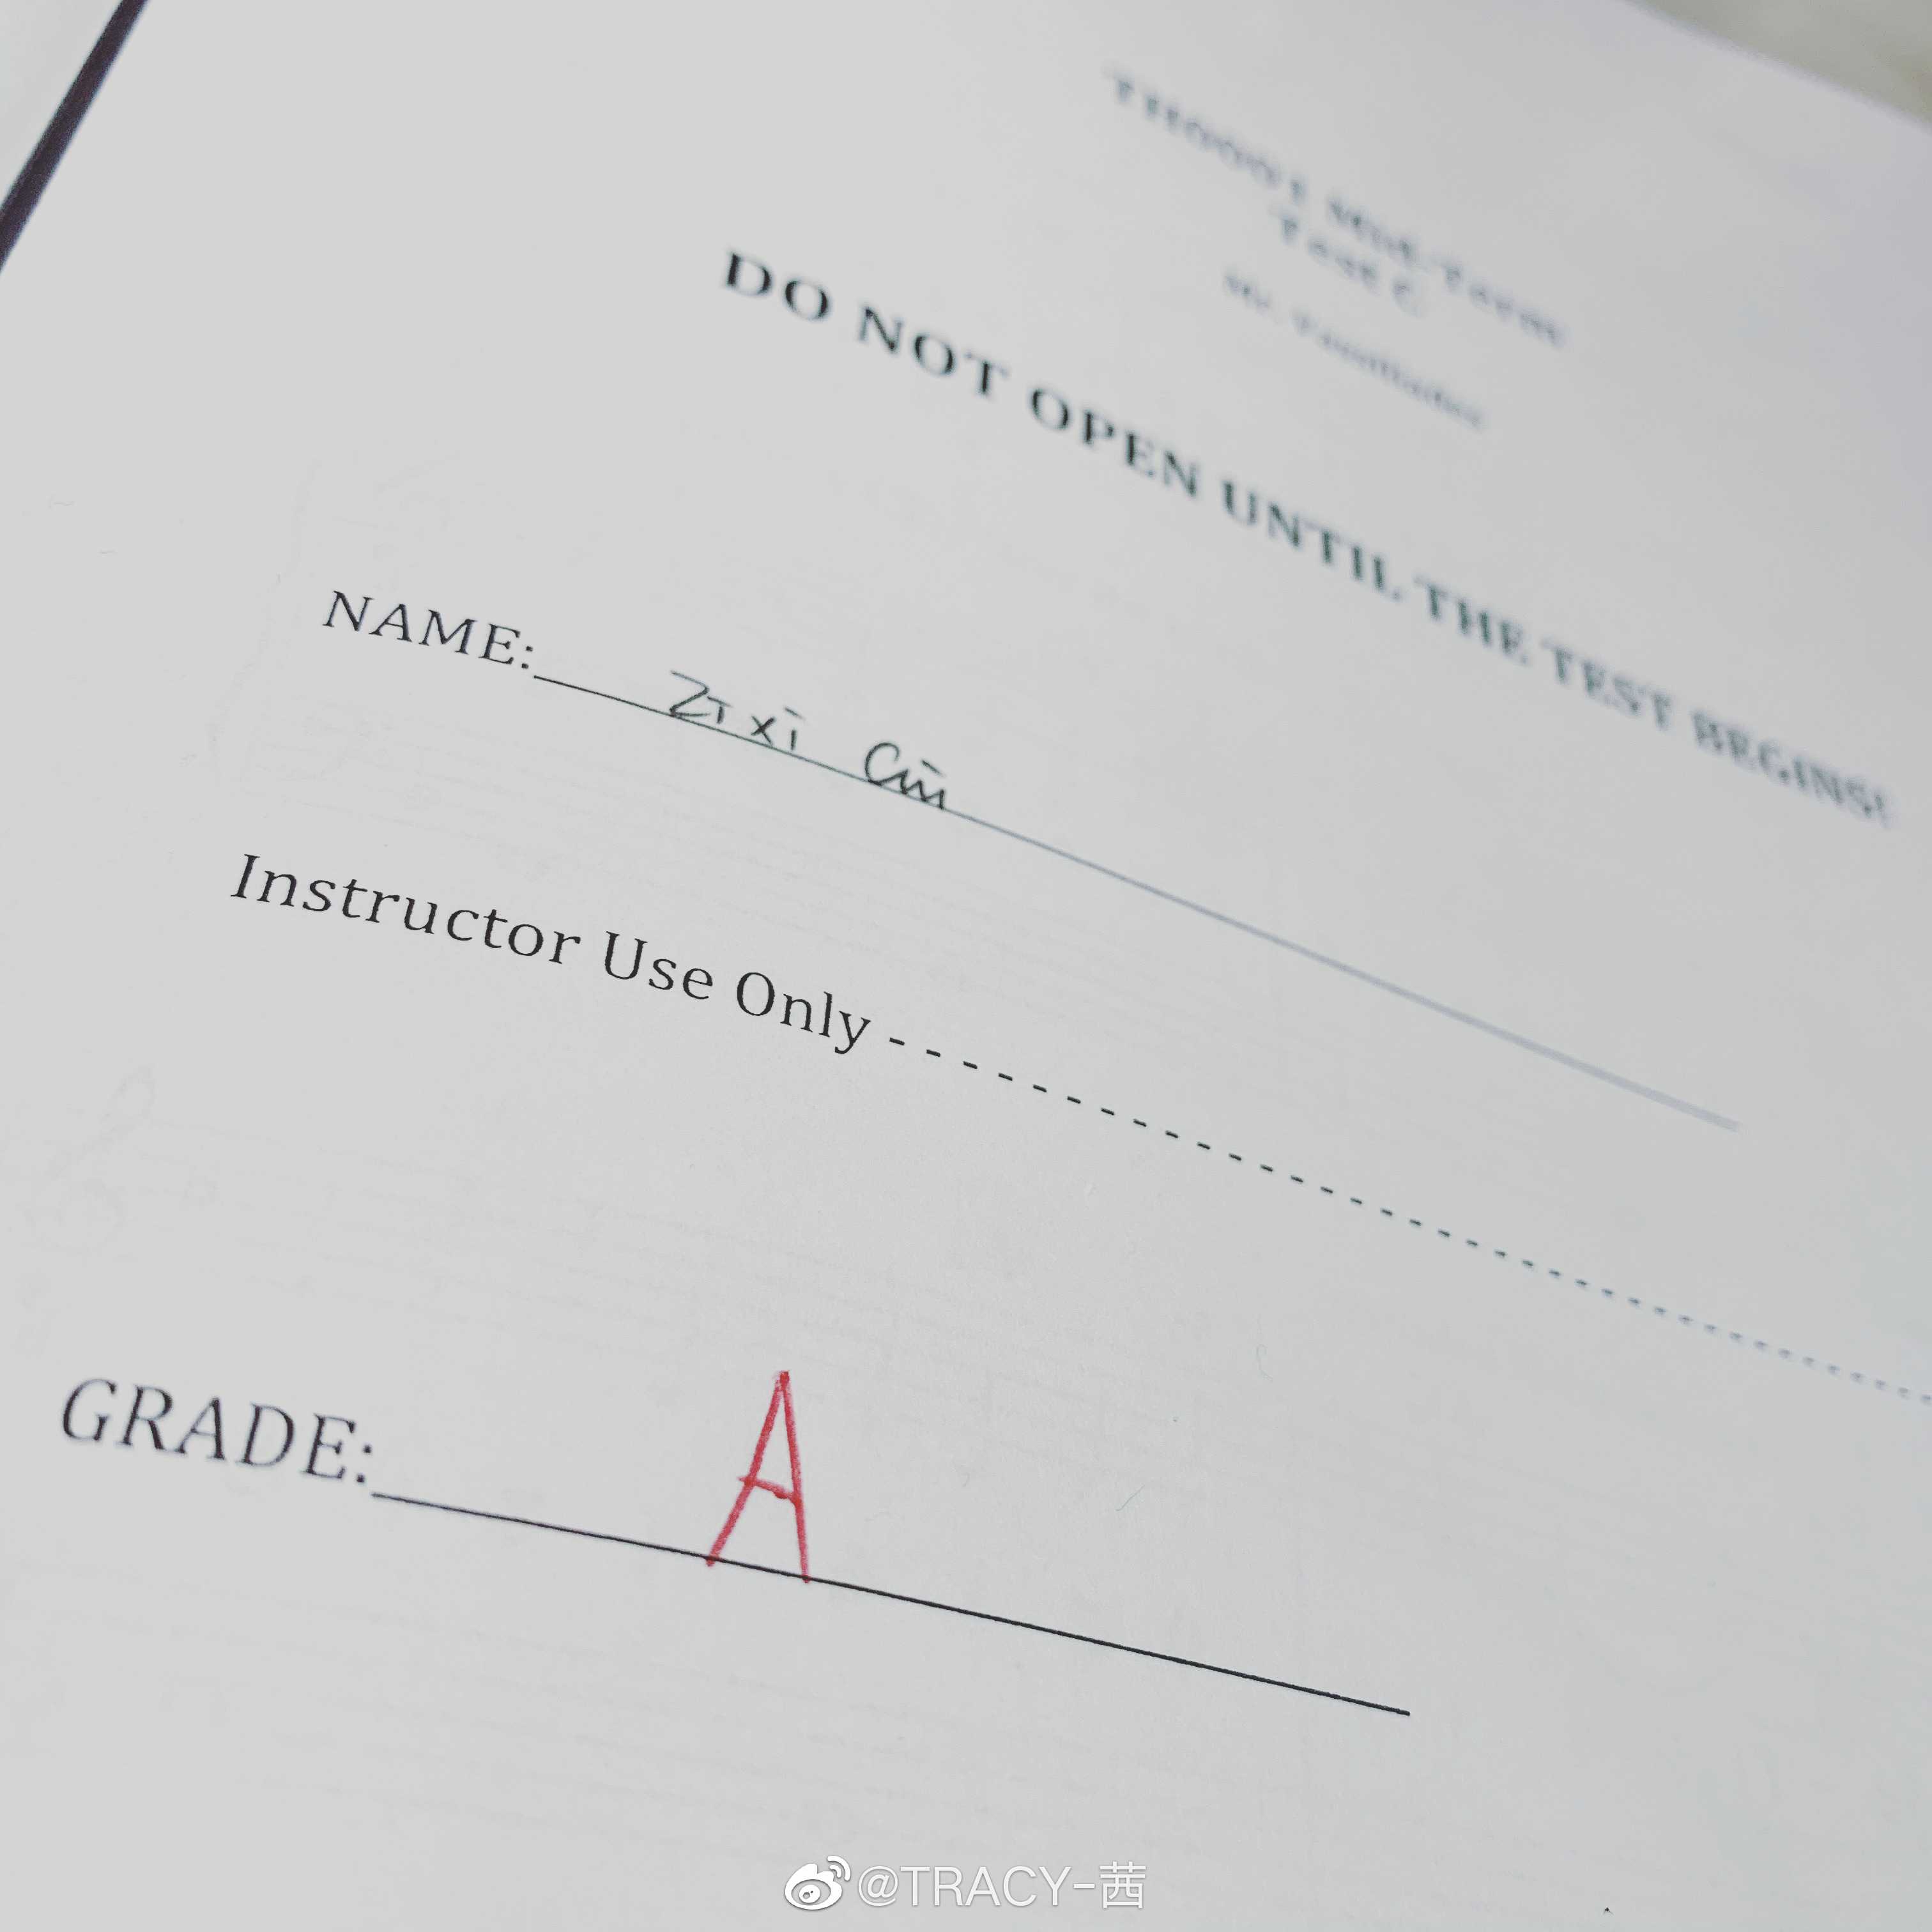 Mid-Term
Test C
Mr.
DO NOT OPEN UNTIL THE TEST BEGINS!
NAME: Zixi
Instructor Use Only - - - - - - - - - - - - - - - - - - - - - - - - - - - - - - - - - -
GRADE: A
@TRACY-茜